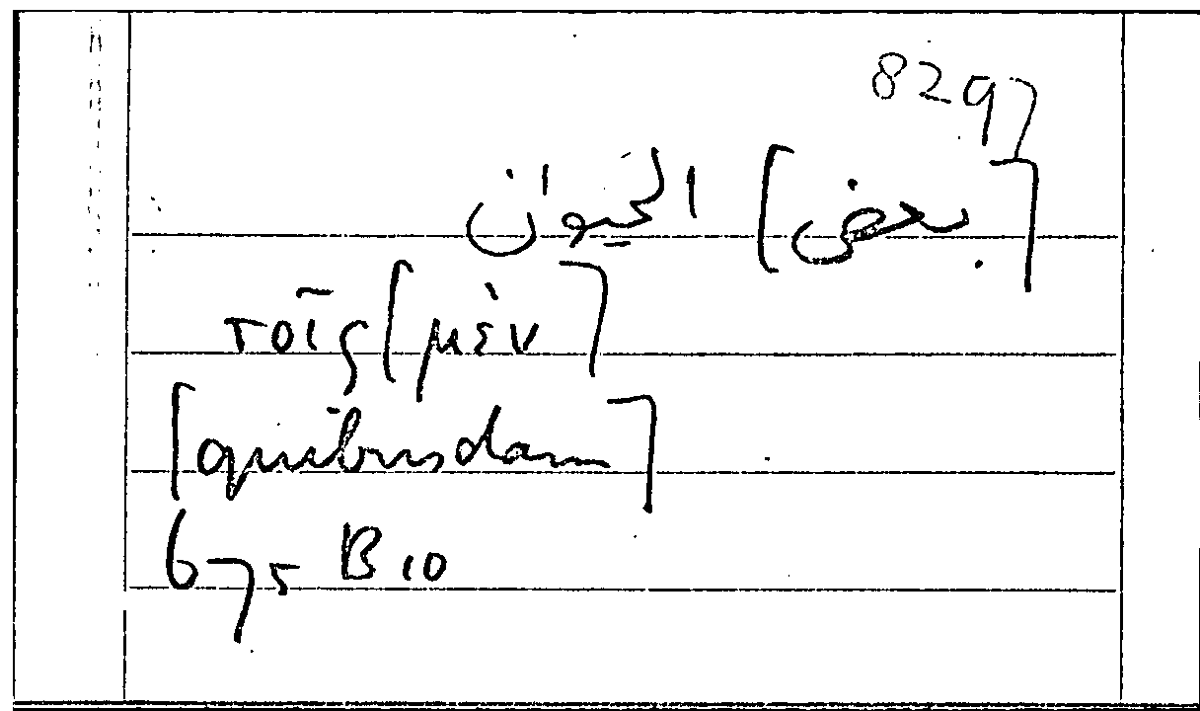 8297
[بعض] الحيوان
τοῖς [μὲν]
[quibusdam]
675 B 10